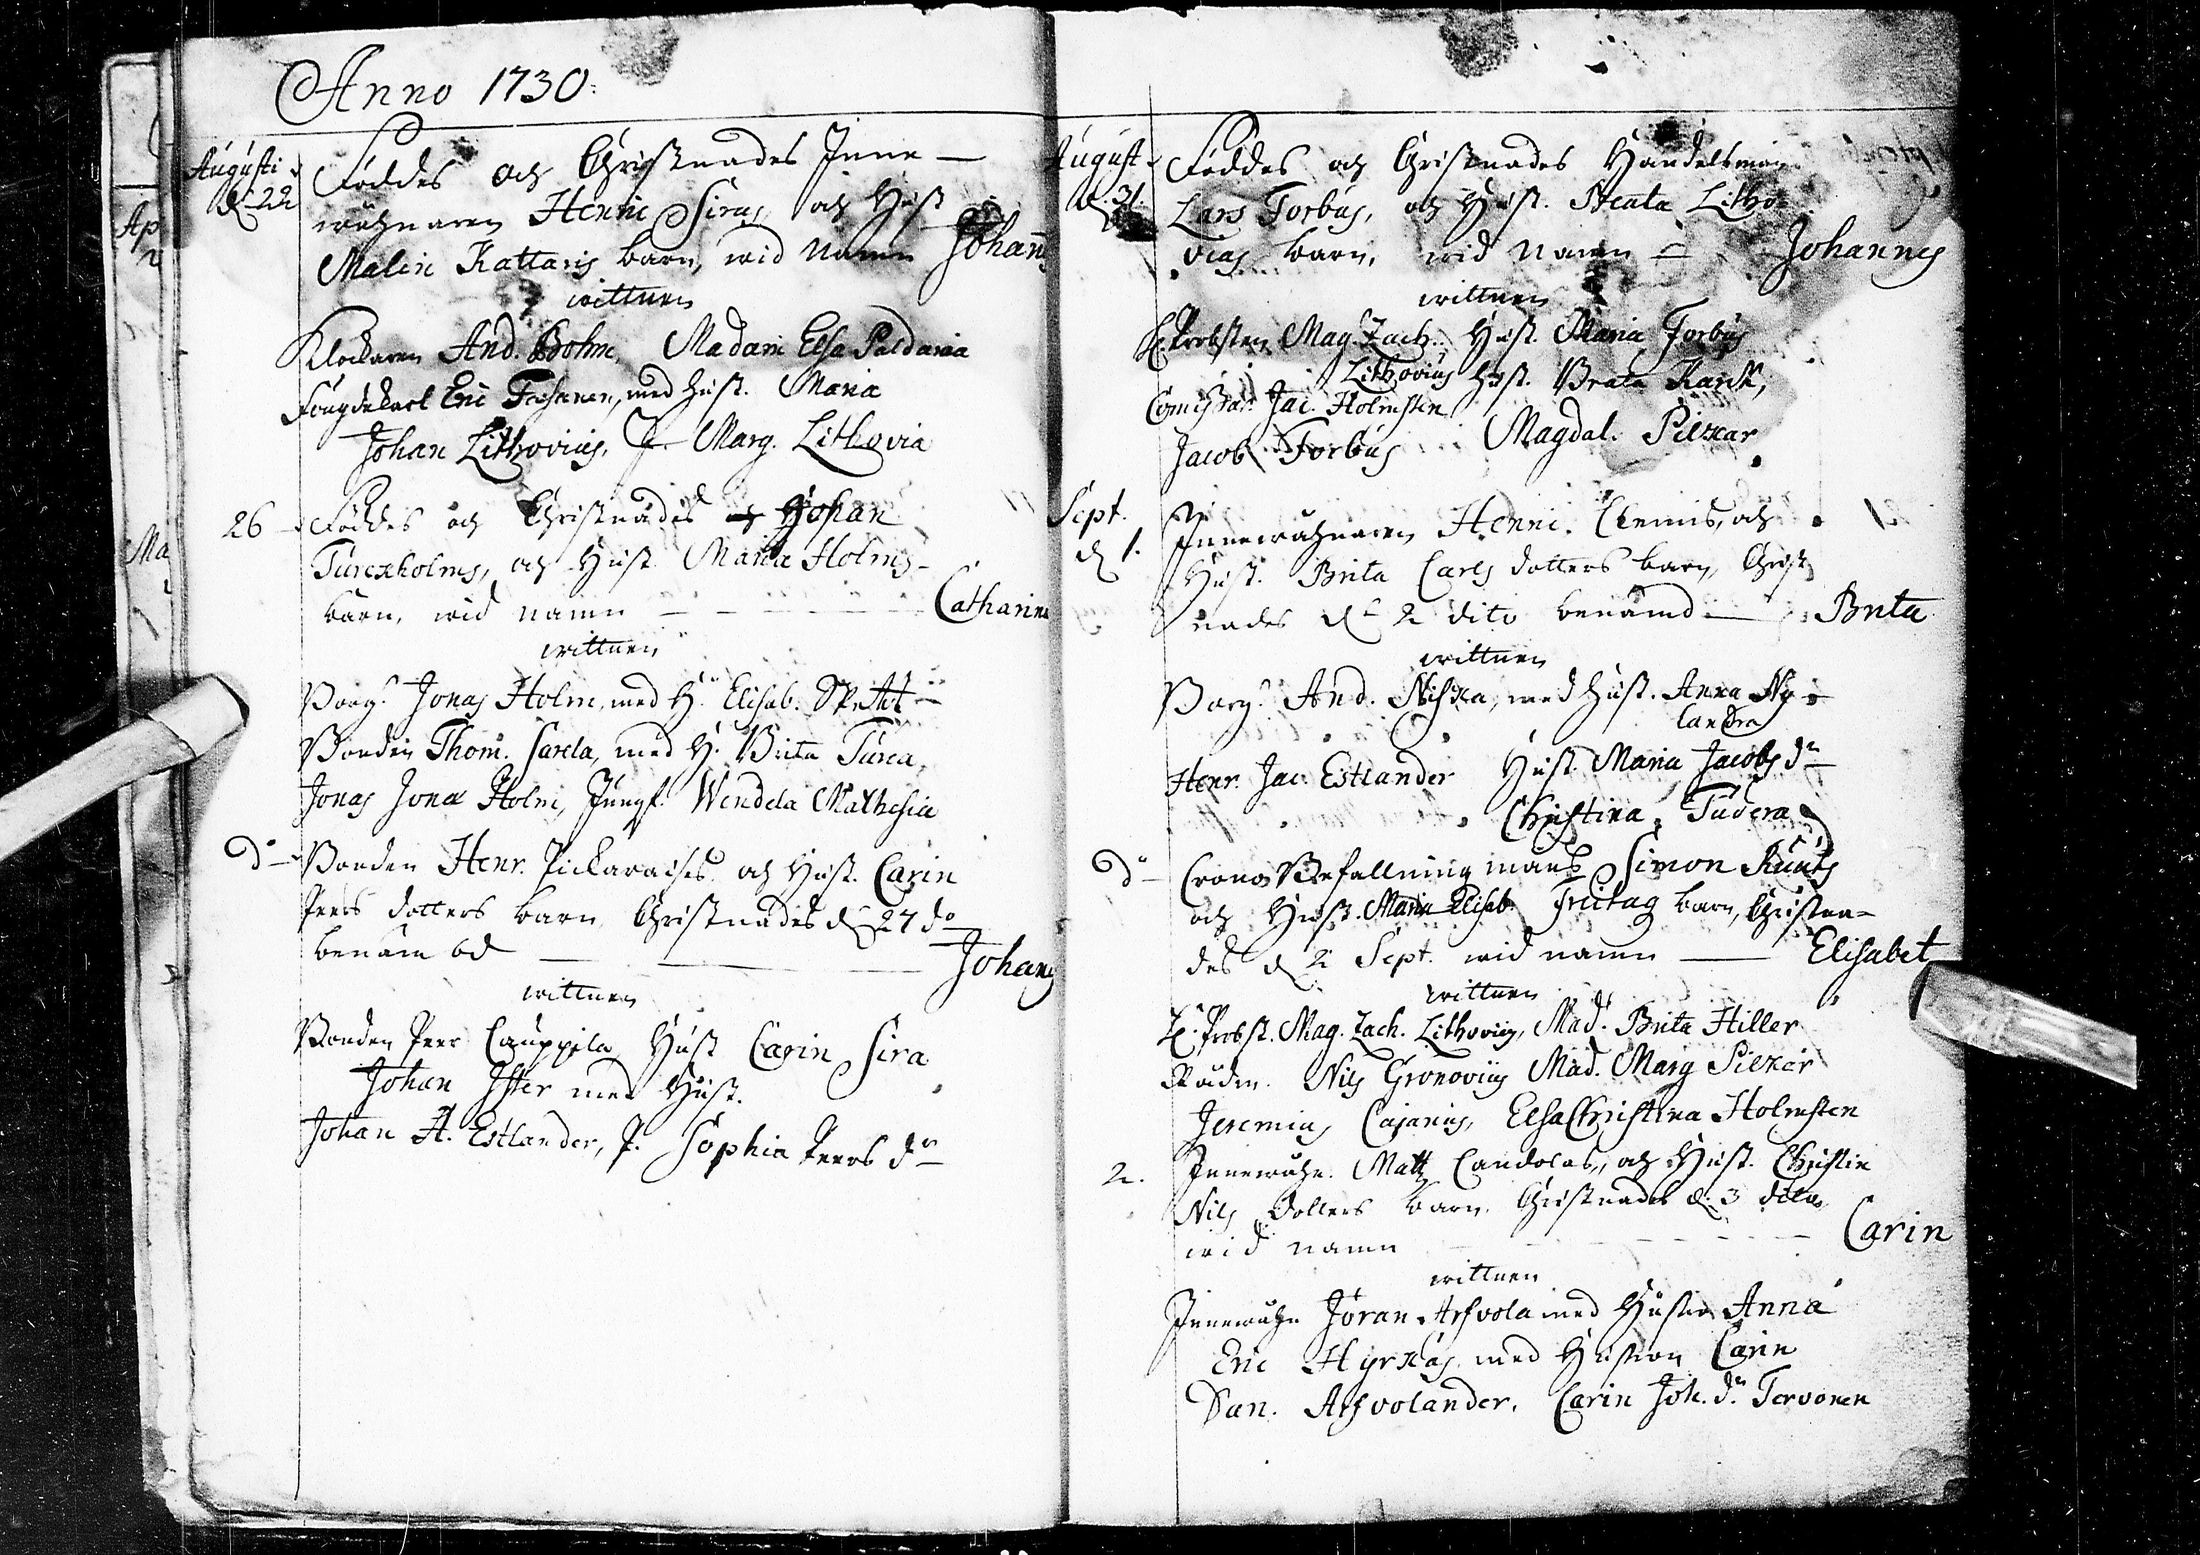 Anno 1730.
Augusti
d. 22
Föddes och Christnades Inne-
wåhnaren Henric Siras och Hust
Malin Kattaris barn, wid namn Johans
wittnen
Klockaren And. Bohm, Madam Elsa Paldania
Fougdekarl Eric Frosanen, med hust. Maria
Johan Lithovius, J. Marg. Lithovia
26 Föddes och Christnades Johan
Turexholms, och Hust Maria Holms
barn, wid namn Catharina
wittnen
Borg. Jonas Holm, med H. Elisab. Spetit
Bonden Thom. Sarela, med H. Brita Turea
Jonas Jonæ Holm, Jungf. Wendela Mathesia
do Bonden Henr. Pickaraises och Hust. Carin
Peers dotters barn Christnades d 27 do
benämbd Johans
wittnen
Bonden Peer Cauppila Hust Carin Sira
Johan Ister med Hust.
Johan H. Estlander, P. Sophia Peers dr
August
d. 31.
Föddes och Christnades Handelsman
Lars Forbus, och Hust. Beata Litho-
vias barn, wid namn Johannes
wittnen
H. Probsten Mag. Zach. Hust. Maria Forbus
Lithovius Hust. Beata Ranck,
Comissar. Jac. Holmsten
Jacob Forbus Magdal. Pilxar
Sept.
d 1. Innewåhnaren Henric. Clemis, och
Hust. Brita Carls dotters barn, Christ
nades d 2 dito benämd Brita
wittnen
Borg. And. Niska, med hust. Anna Ny-
landra
Henr. Jac. Estlander Hust Maria Jacobs dr
Christina Tudera
do Crono Befallningsmans Simon Kuuts
och Hust. Maria Elisab. Freitag barn, Christna-
des d 2 Sept. wid namn Elisabet
wittnen
H. Probst. Mag. Zach. Lithovius, Mad. Brita Hiller
Rådm. Nils Gronovius Mad. Marg Pilxar
Jeremias Cajanus, Elsa Christina Holmsten
2. Innewåhn. Matts Candolas, och Hust. Christin
Nils dotters barn Christnades d. 3 dito
wid namn Carin
wittnen
Innewåhn Jöran Arfvola med Hustro Anna
Eric Hyrkäs med Hustron Carin
Dan. Arfvolander, Carin Joh. dr Tervonen